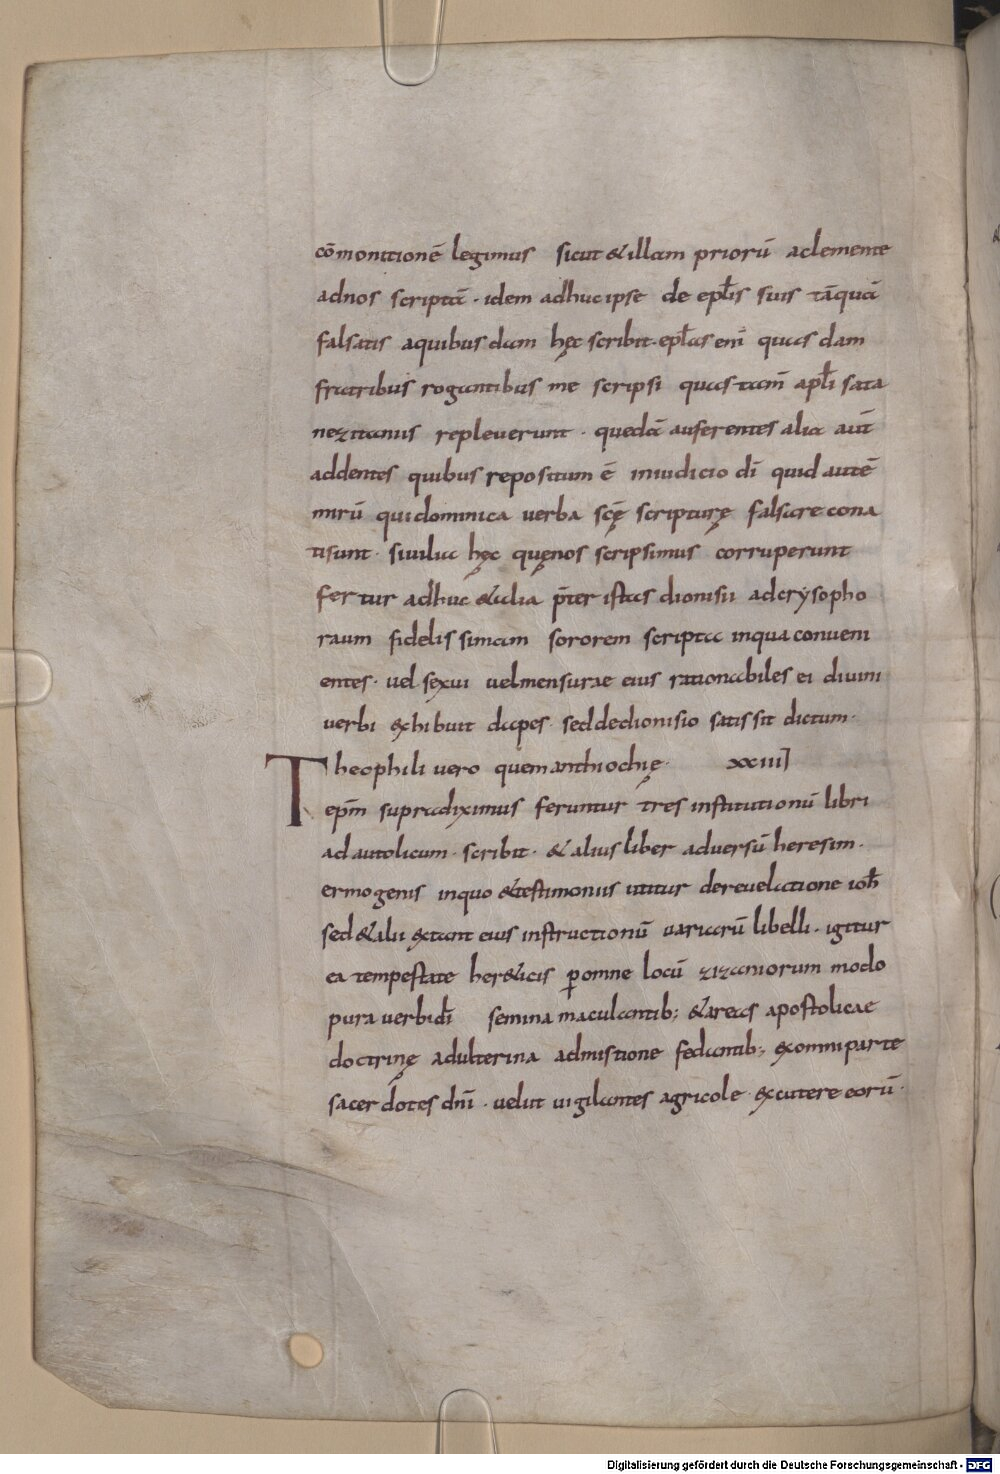 cōmonitionē legimus sicut &illam priorū aclemente
adnos scriptā · idem adhucipse de epłis suis tāquā
falsatis aquibusdam hęc scribit · epłas eni̅ quas dam
fratribus rogantibus me scripsi quas tam̅ apłi sata
nezitanus repleuerunt · quedā auferentes alia aut̅
addentes quibus repositum ē iniudicio di̅ quid autē
mirū quidominica uerba scę̅ scripturę falsare cona
tisunt · siuilia hęc quęnos scripsimus corruperunt
fertur adhuc &alia p̅ter istas dionisii adcrysopho
raum fidelissimam sororem scripta inqua conueni
entes · uel sexui uelmensurae eius rationabiles ei diuini
uerbi exhibuit dapes · seddedionisio satis sit dictum ·
Theophili uero quem anthiochię · xxiii
epm̅ supradiximus feruntur tres institutionū libri
ad autolicum · scribit · & alius liber aduersū heresim ·
ermogenis inquo &testimoniis utitur dereuelatione ioh̅
sed &alii extant eius instructionū uariarū libelli · igitur
ea tempestate her&icis ꝑomne locū zizaniorum modo
pura uerbidi̅ semina maculantib; &areas apostolicae
doctrinę adulterina admistione fedantib; exomniparte
sacerdotes dni̅ · uelut uigilantes agricole · excutere eorū ·
Digitalisierung gefördert durch die Deutsche Forschungsgemeinschaft - DFG